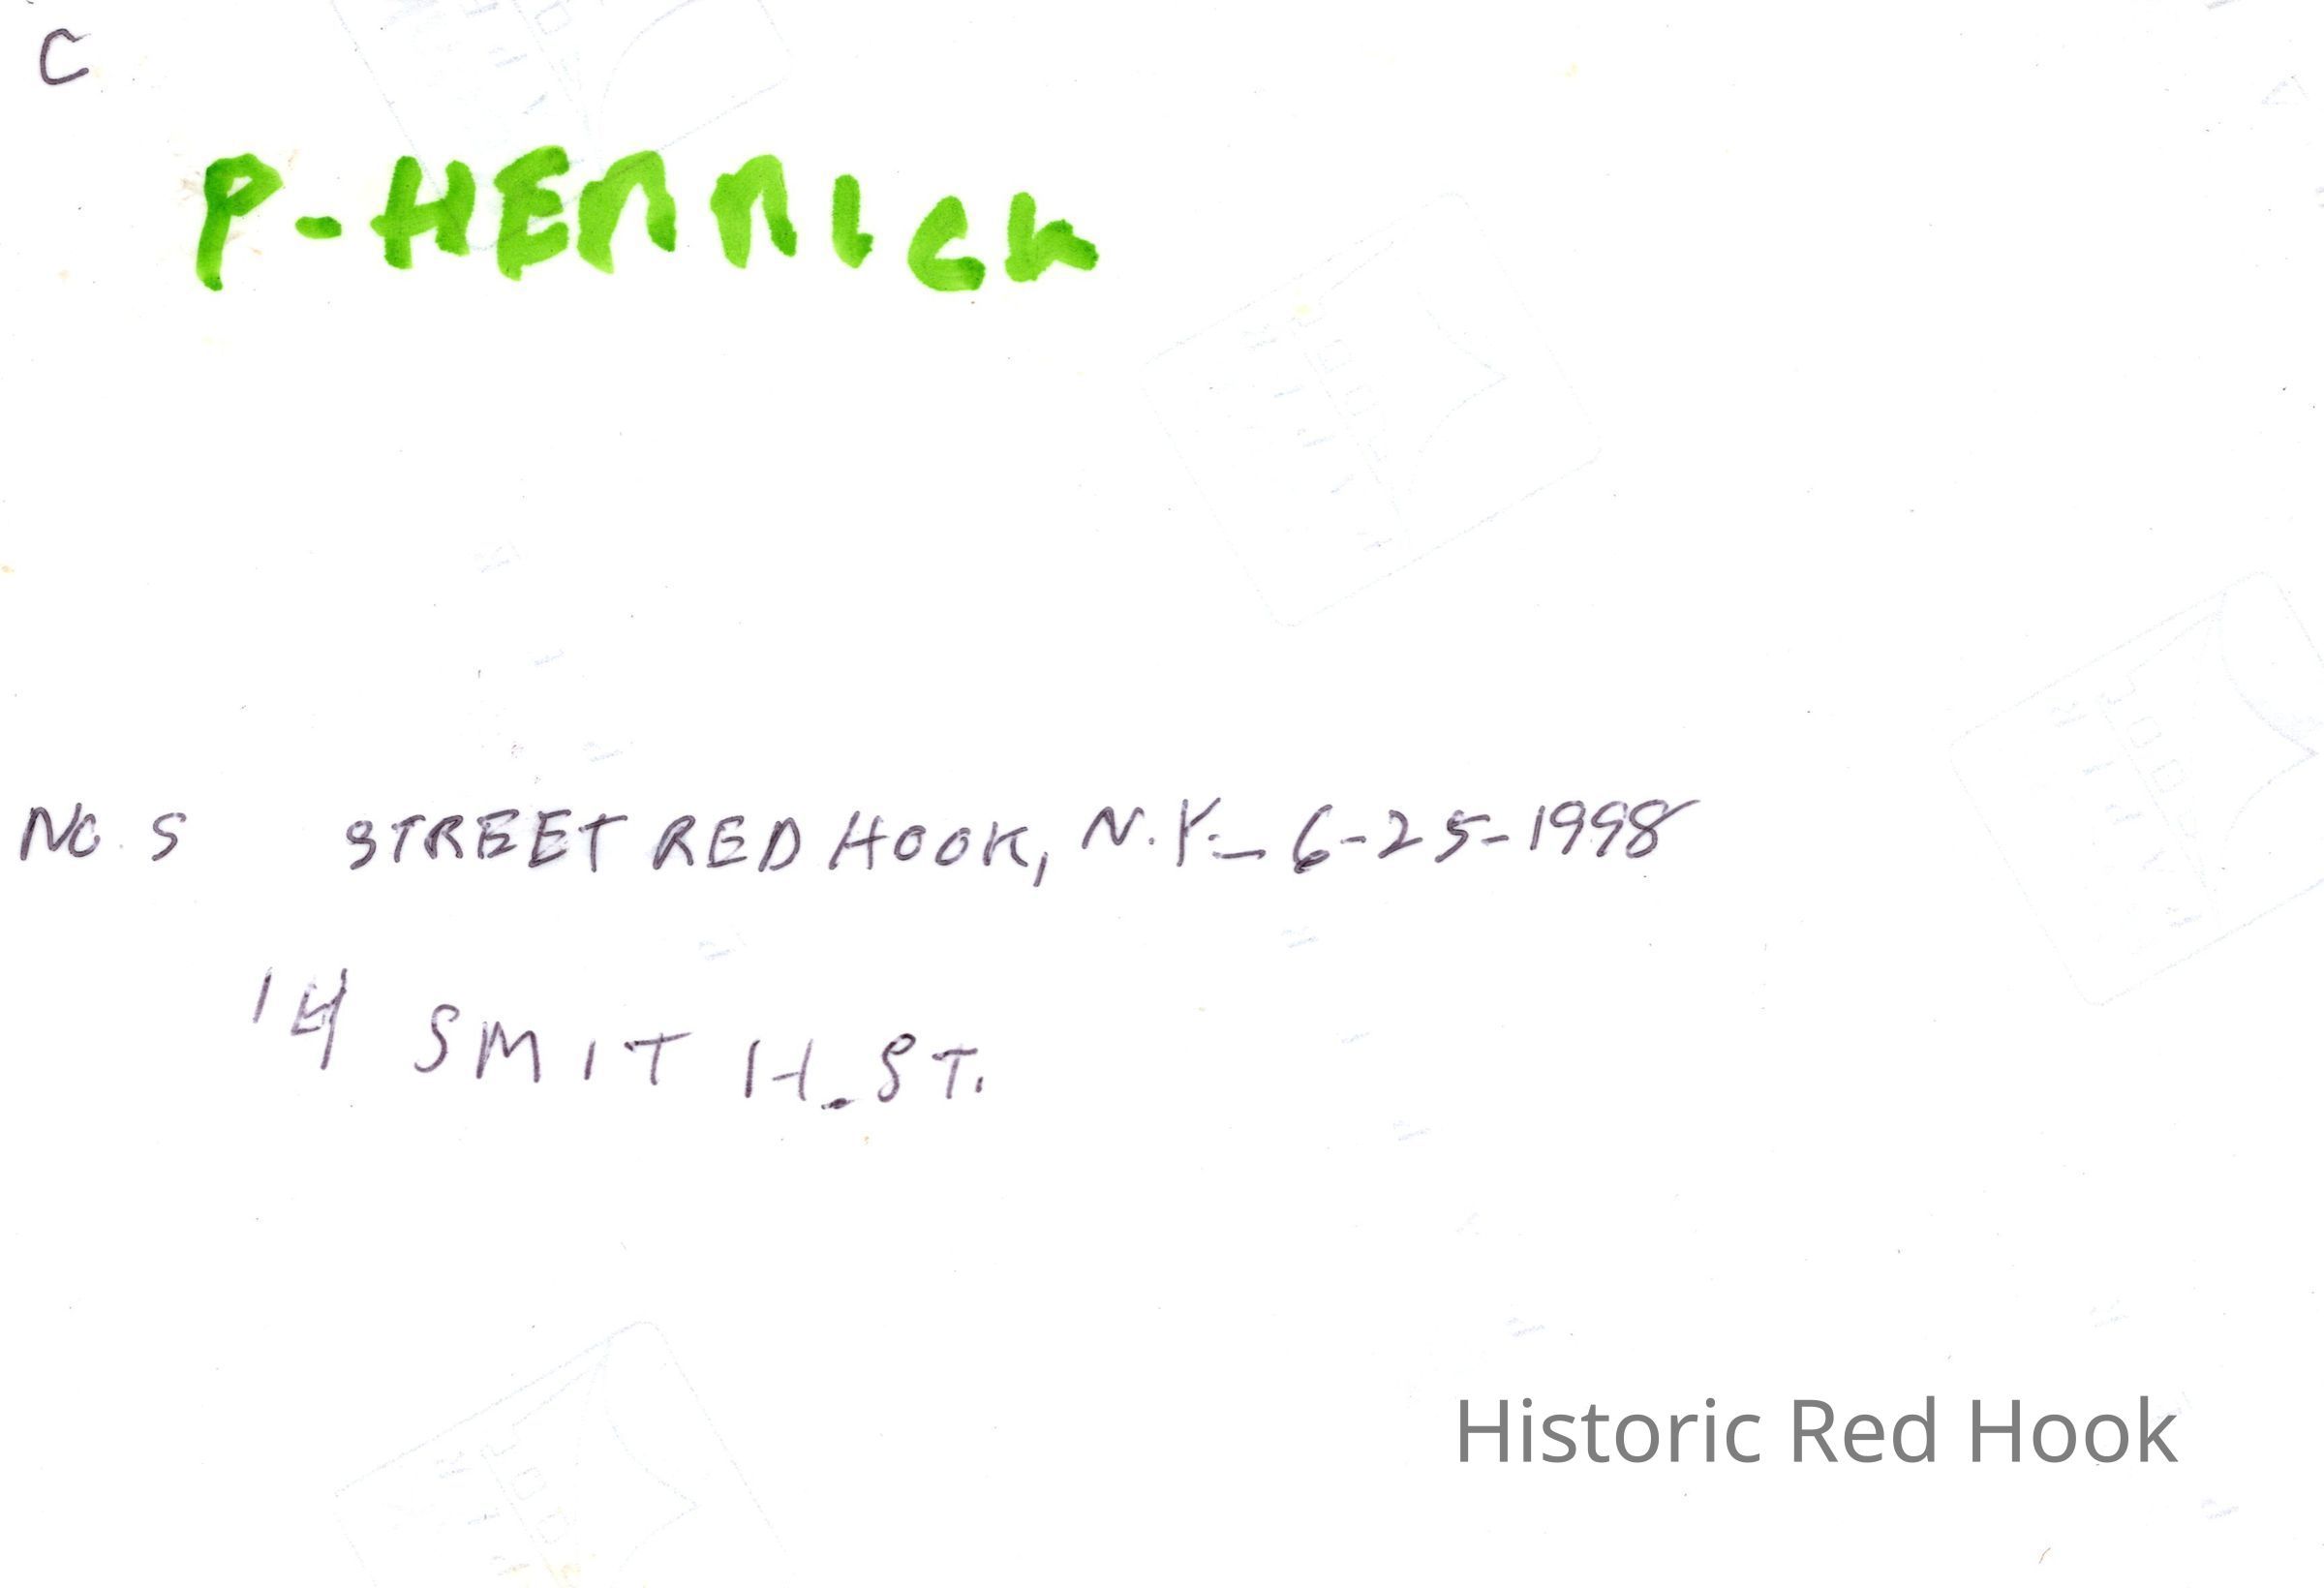 C
P-HERRICK
NO. S STREET RED HOOK, N.Y. - 6-25-1998
14 SMITH-ST.
Historic Red Hook